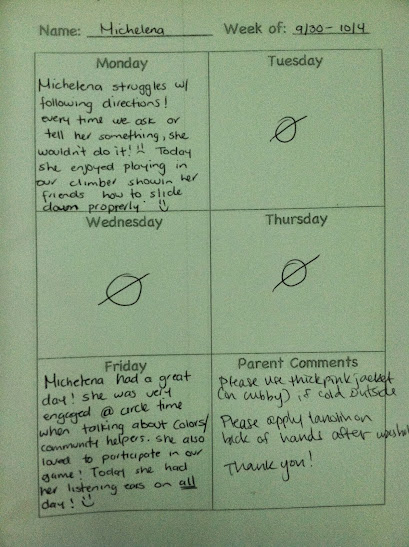 Name: Michelena Week of: 9/30 - 10/4
Monday
Michelena struggles w/
following directions!
every time we ask or
tell her something, she
wouldn't do it! Today
she enjoyed playing in
our climber showin her
friends how to slide
down properly.
Tuesday
Wednesday
Thursday
Friday
Michelena had a great
day! She was very
engaged @ circle time
when talking about colors/
community helpers. She also
loved to participate in our
game! Today she had
her listening ears on all
day!
Parent Comments
Please use thick pink jacket
(in cubby), if cold outside
Please apply lanolin on
back of hands after
Thank you!